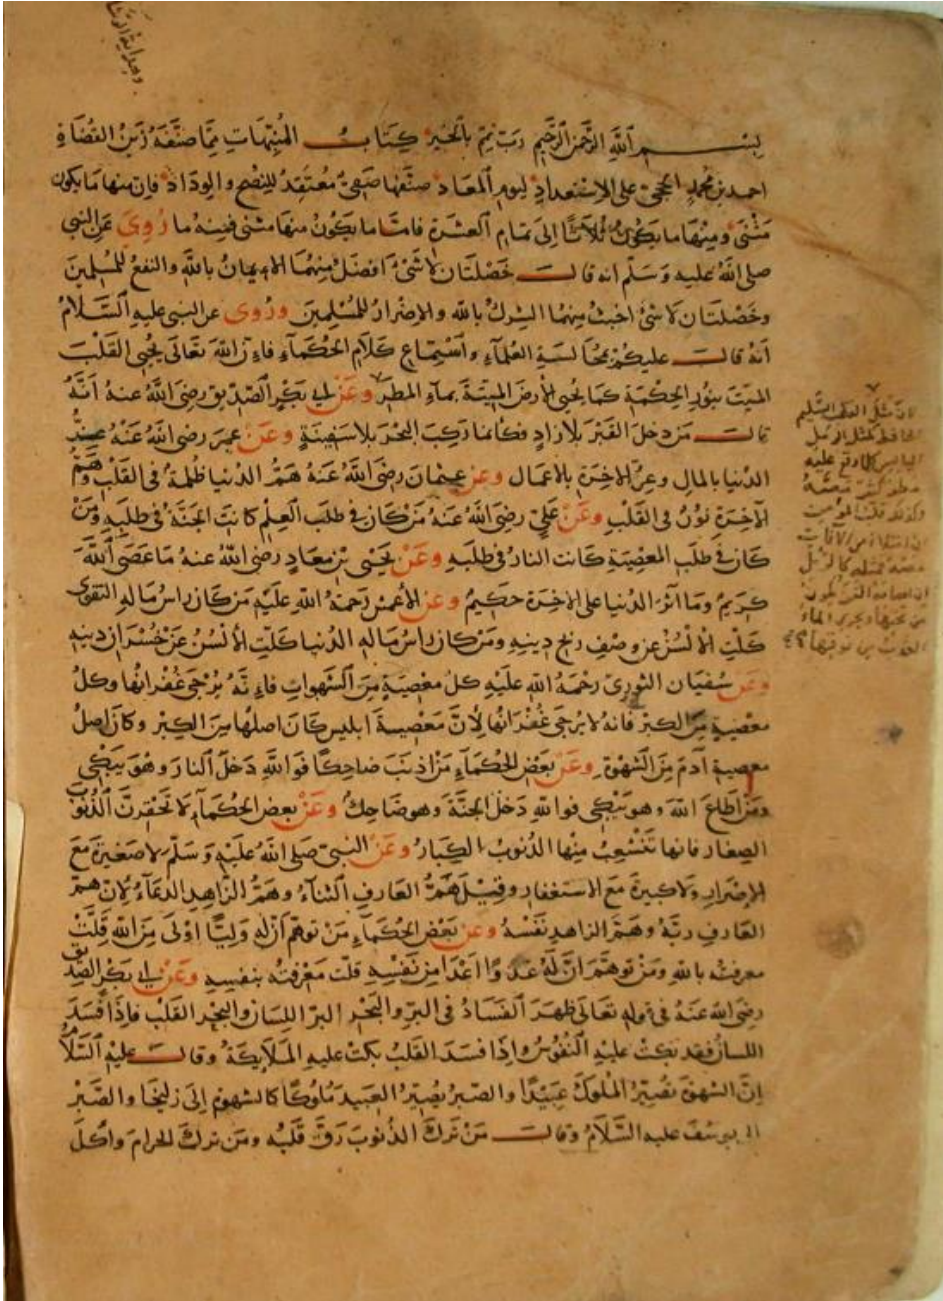 بسم الله الرحمن الرحيم رب تمم بالخير كتاب المنبهات مما صنفه زين القضاة
احمد بن محمد الحجى على الاستعداد ليوم المعاد صنفها صفى معتقد للنصح والوداد فان منها ما يكون
مثنى ومنها ما يكون ثلاثا الى تمام العشرة فاما ما يكون منها مثنى فمنه ما روى عن النبى
صلى الله عليه وسلم انه قال خصلتان لا شئ افضل منهما الايمان بالله والنفع للمسلمين
وخصلتان لا شئ اخبث منهما الشرك بالله والاضرار للمسلمين وروى عن النبى عليه السلام
انه قال عليكم بمجالسة العلماء واستماع كلام الحكماء فان الله تعالى يحيى القلب
الميت بنور الحكمة كما يحيى الارض الميتة بماء المطر وعن ابى بكر الصديق رضى الله عنه انه
قال من دخل القبر بلا زاد فكانما ركب البحر بلا سفينة وعن عمر رضى الله عنه عز
الدنيا بالمال وعز الاخرة بالاعمال وعن عثمان رضى الله عنه هم الدنيا ظلمة فى القلب وهم
الاخرة نور فى القلب وعن على رضى الله عنه من كان فى طلب العلم كانت الجنة فى طلبه ومن
كان فى طلب المعصية كانت النار فى طلبه وعن يحيى بن معاذ رضى الله عنه ما عصى الله
كريم وما آثر الدنيا على الاخرة حكيم وعن الاعمش رحمة الله عليه من كان راس ماله التقوى
كلت الالسن عن وصف ربح دينه ومن كان راس ماله الدنيا كلت الالسن عن خسران دينه
وعن سفيان الثورى رحمة الله عليه كل معصية من الشهوات فانه يرجى غفرانها وكل
معصية من الكبر فانه لا يرجى غفرانها لان معصية ابليس كان اصلها من الكبر وكان اصل
معصية آدم من الشهوة وعن بعض الحكماء من اذنب ضاحكا فوالله دخل النار وهو يبكى
ومن اطاع الله وهو يبكى فوالله دخل الجنة وهو ضاحك وعن بعض الحكماء لا تحقرن الذنوب
الصغار فانها تنشعب منها الذنوب الكبار وعن النبى صلى الله عليه وسلم لا صغيرة مع
الاضرار ولا كبيرة مع الاستغفار وقيل هم العارف الثناء وهم الزاهد الدعاء لان هم
العارف ربه وهم الزاهد نفسه وعن بعض الحكماء من توهم ان له وليا اولى من الله قلت
معرفته بالله ومن توهم ان له عدوا اعدا من نفسه قلت معرفته بنفسه وعن ابى بكر الصديق
رضى الله عنه فى قوله تعالى ظهر الفساد فى البر والبحر البر اللسان والبحر القلب فاذا فسد
اللسان فقد بكت عليه النفوس واذا فسد القلب بكت عليه الملائكة وقال عليه السلام
ان الشهوة تصير الملوك عبيدا والصبر يصير العبيد ملوكا كالشهوة الى زليخا والصبر
الى يوسف عليه السلام وقال من ترك الذنوب رق قلبه ومن ترك الحرام واكل